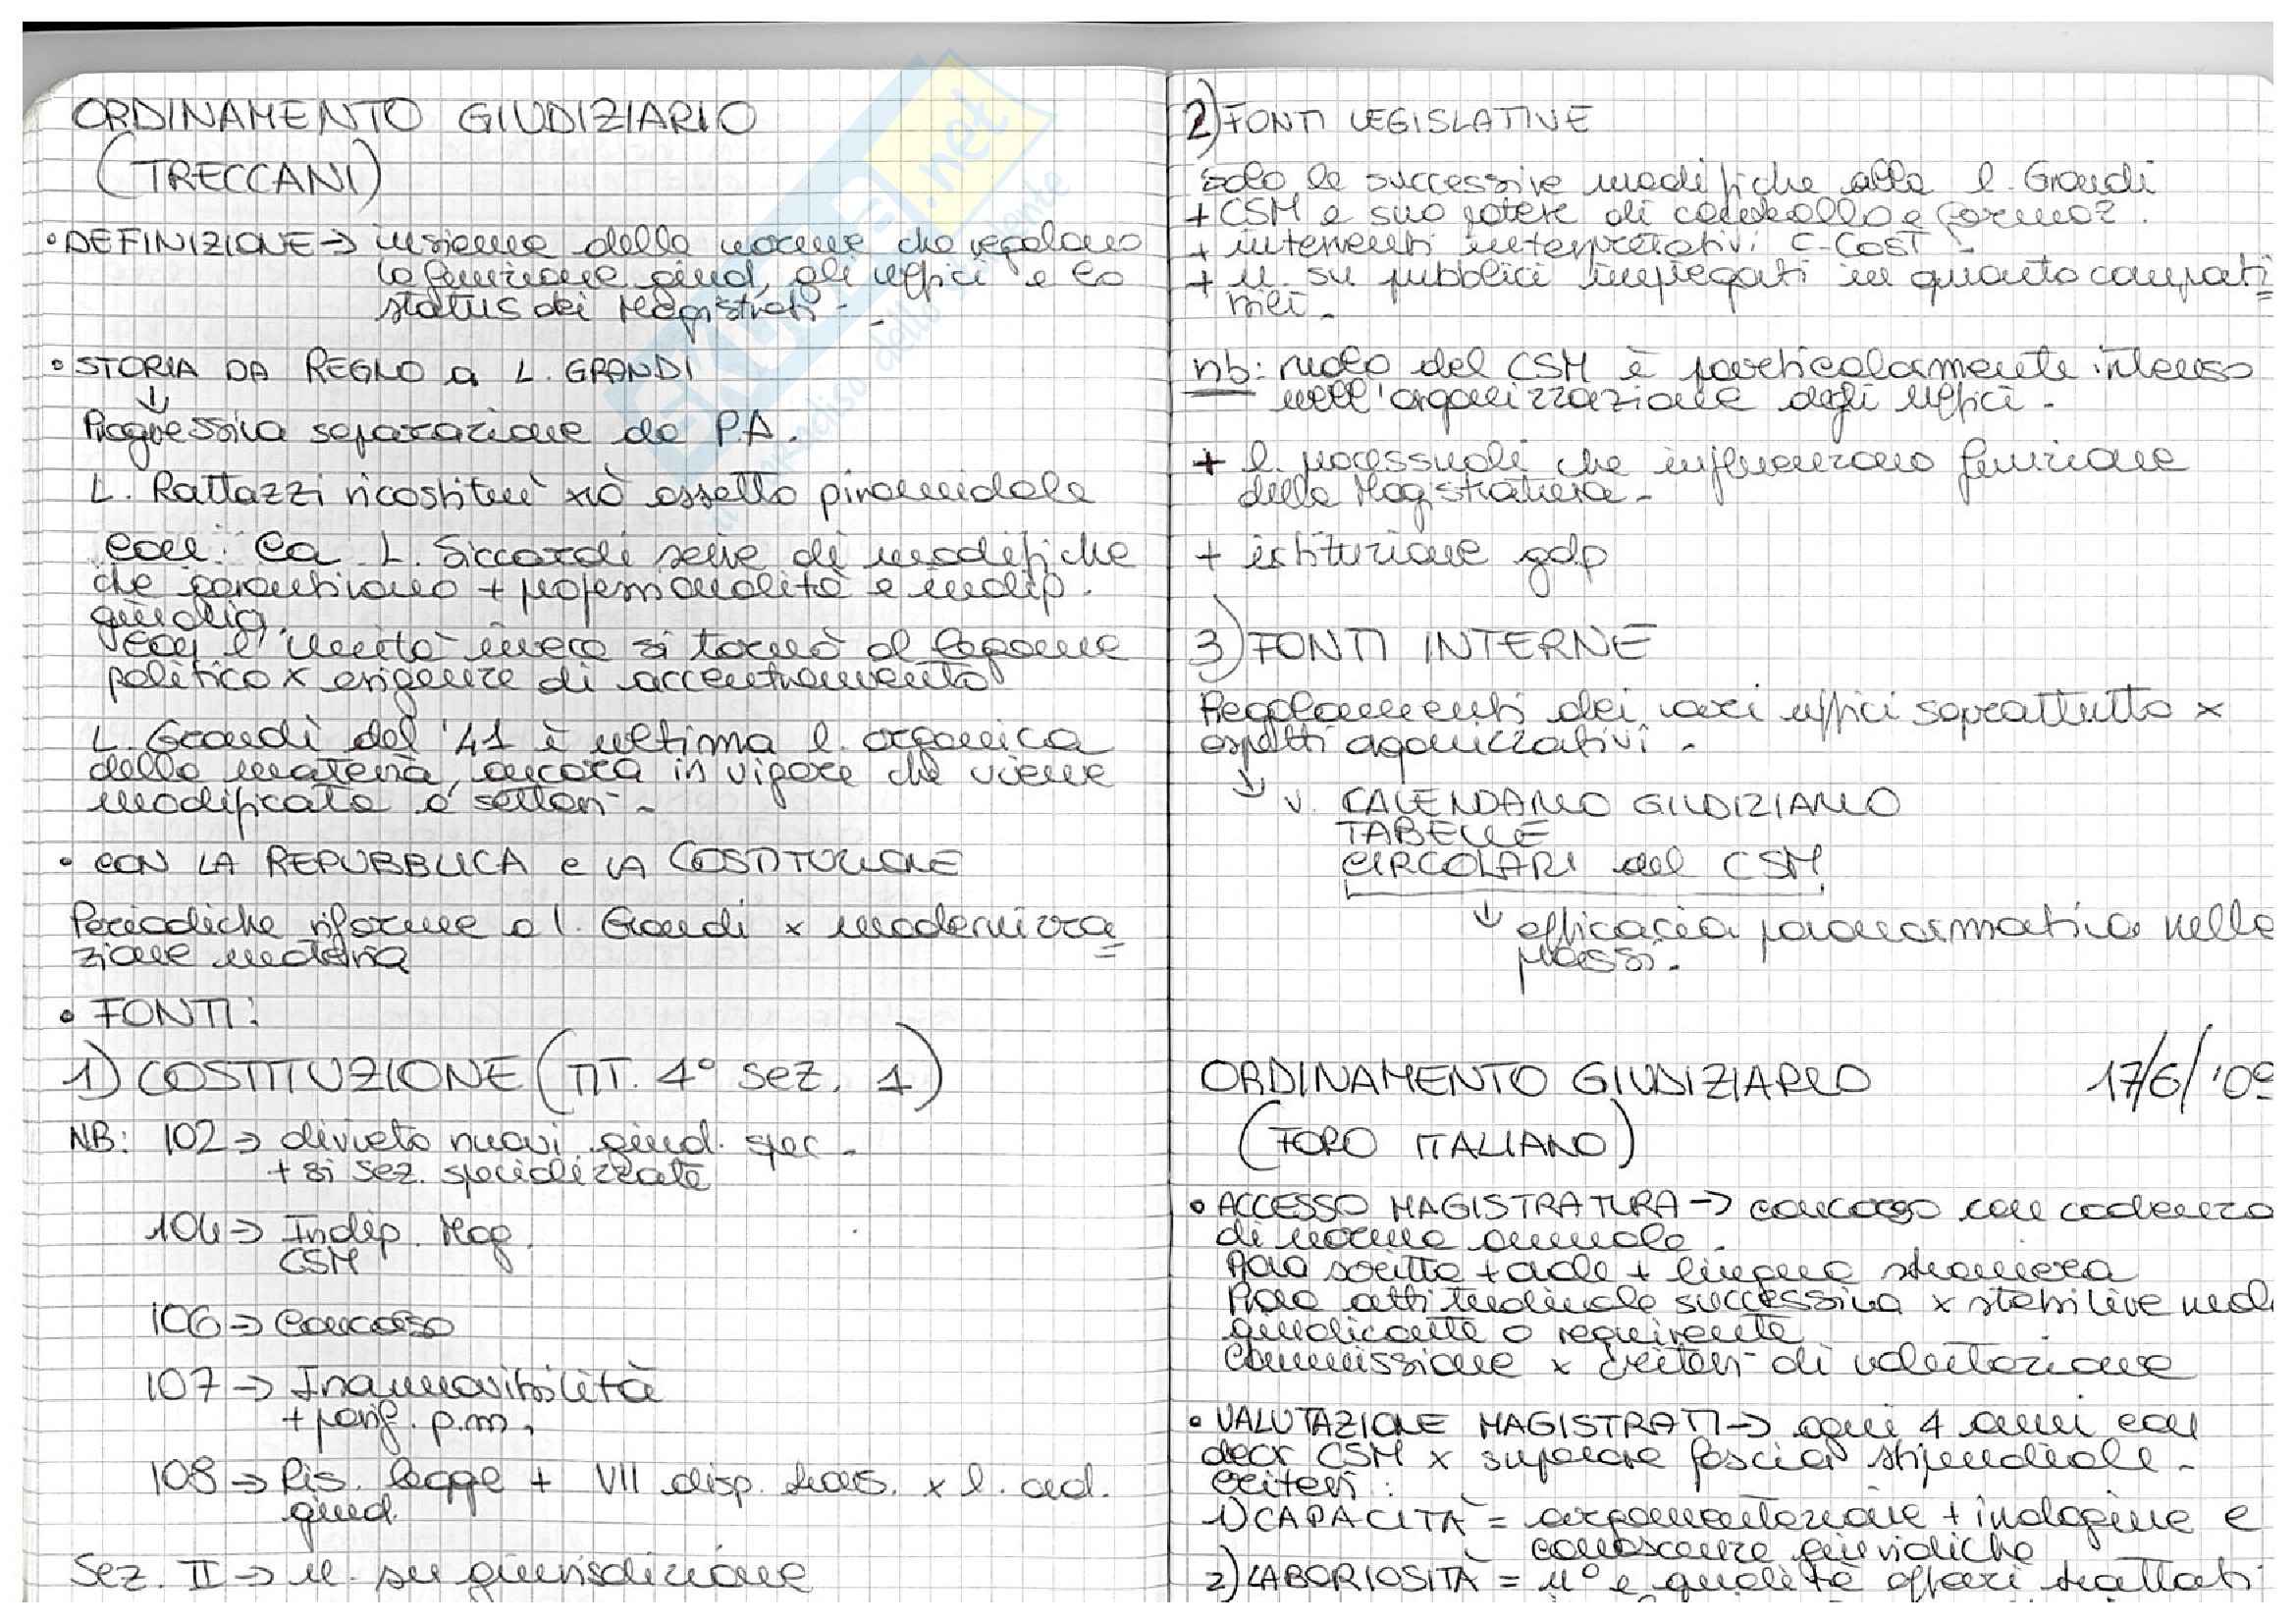 ORDINAMENTO GIUDIZIARIO
(TRECCANI)
• DEFINIZIONE → insieme delle norme che regolano
la funzione giud, gli uffici e lo
status dei Magistrati.
• STORIA DA REGNO a L. GRANDI
↓
Progressiva separazione da P.A.
L. Rattazzi ricostituì xiò assetto piramidale
con la L. Siccardi serie di modifiche
che garantivano + professionalità e indip.
giudici.
con l'unità invece si tornò al legame
politico x esigenze di accentramento
L. Grandi del '41 è ultima l. organica
della materia, ancora in vigore che viene
modificata a settori.
• CON LA REPUBBLICA e LA COSTITUZIONE
Periodiche riforme a l. Grandi x modernizza=
zione materia
• FONTI:
1) COSTITUZIONE (TIT. 4° SEZ. 1)
NB: 102 → divieto nuovi giud. spec.
+ si sez. specializzate
104 → Indip. Mag.
CSM
106 → Concorso
107 → Inamovibilità
+ parif. p.m.
108 → Ris. legge + VII disp. trans. x l. ord.
giud.
Sez. II → n. su giurisdizione
2) FONTI LEGISLATIVE
solo le successive modifiche alla l. Grandi
+ CSM e suo potere di controllo e
+ interventi interpretativi C. COST.
+ n. su pubblici impiegati in quanto compati=
bili.
nb: ruolo del CSM è particolarmente intenso
nell'organizzazione degli uffici.
+ l. processuali che influenzano funzione
della Magistratura.
+ istituzione gdp
3) FONTI INTERNE
Regolamenti dei vari uffici soprattutto x
aspetti organizzativi.
↓ v. CALENDARIO GIUDIZIARIO
TABELLE
CIRCOLARI del CSM
↓ efficacia paranormativa nella
prassi.
ORDINAMENTO GIUDIZIARIO 17/6/'0
(FORO ITALIANO)
• ACCESSO MAGISTRATURA → concorso con cadenza
di norma annuale.
Prova scritta + orale + lingua straniera
Prova attitudinale successiva x stabilire
giudicante o requirente
Commissione x criteri di valutazione
• VALUTAZIONE MAGISTRATI → ogni 4 anni con
decr CSM x superare fascia stipendiale.
criteri:
1) CAPACITÀ = argomentazione + indagine e
conoscenze giuridiche
2) LABORIOSITÀ = n° e qualità affari trattati